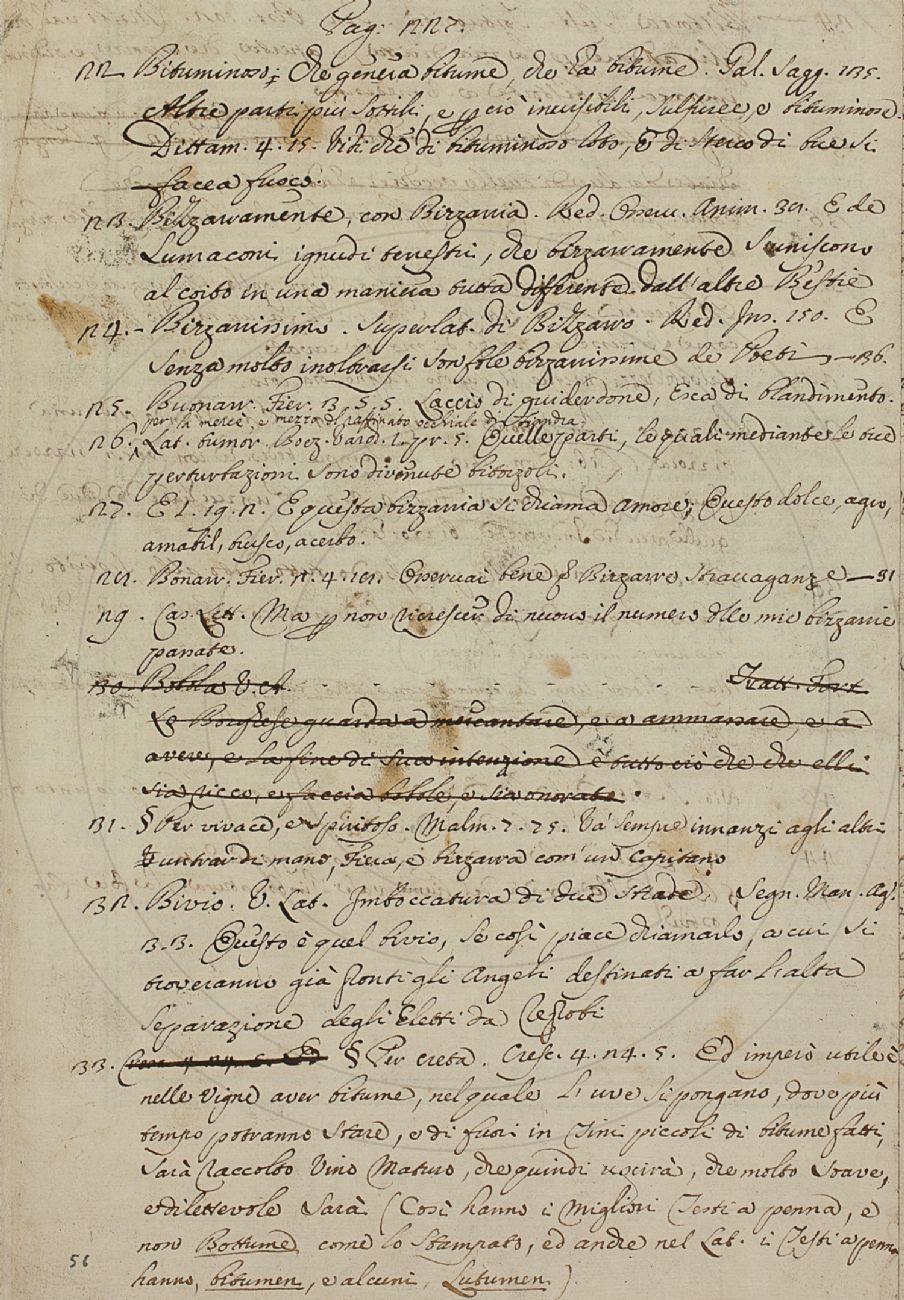 Pag: 227.
22 Bituminoso; che genera bitume, che ha bitume. Gal. Sagg. 135.
Altre parti più sottili, e p ciò invisibili, sulfuree, e bituminose
Dittam. 4. 15. Vidi che di bituminoso loto, e di sterco di bue si
facea fuoco.
23. Bizzarramente, con Bizzarria. Red. Osserv. Anim. 31. E de
Lumaconi ignudi terrestri, che bizzarramente s'uniscono
al coito in una maniera tutta differente dall'altre Bestie
24. - Bizzarrissimo. Superlat. di Bizzarro. Red. Ins. 150. E
senza molto inoltrarsi son fole bizzarrissime de Poeti — 36.
25. Buonarr. Fier. 3. 5. 5. Laccio di guiderdone, Esca di blandimento.
per la mercè, e mezzo di raffinato occhiale di
26. Lat. tumor. Boez. Varch. l. pr. 5. Quelle parti, le quali mediante le tue
perturbazioni sono divenute bitorzoli.
27. E 2. 19. 2. E questa bizzarria si chiama Amore; Questo dolce, agro,
amabil, brusco, acerbo.
28. Bonarr. Fier. 4. Osservai bene p Bizzarre stravaganze — 31
29. Cas. Lett. Ma p non ricrescer di nuovo il numero dlle mie bizzarrie
passate.
30. Bottola V. A. Tratt. Fort.
Le Borghese guarda a mercantare, e a ammassare, e a
avere, e la fine di suo intenzione è tutto ciò che che elli
sia ricco, e faccia bobole, e sia onorato.
31. § Per vivace, e spiritoso. Malm. 7. 75. Va' sempre innanzi agli altri
untrar di mano, Fiera, e bizzarra com' un Capitano
32. Bivio. V. Lat. Imboccatura di due strade. Segn. Man. Ag.
3. 3. Questo è quel bivio, se così piace chiamarlo, a cui si
troveranno già pronti gli Angeli destinati a far l'alta
separazione degli Eletti da Reprobi
33. § Per creta. Cresc. 4. 24. 5. Ed imperò utile è
nelle Vigne aver bitume, nel quale l'uve si pongano, dove più
tempo potranno stare, e di fuori in Tini piccoli di bitume fatti,
sarà raccolto Vino Maturo, che quindi uscirà, che molto soave,
e dilettevole sarà (Così hanno i Migliori Testi a penna, e
non Bottume come lo Stampato, ed anche nel Lat. i Testi a penna
hanno, bitumen, e alcuni, Lutumen.)
56